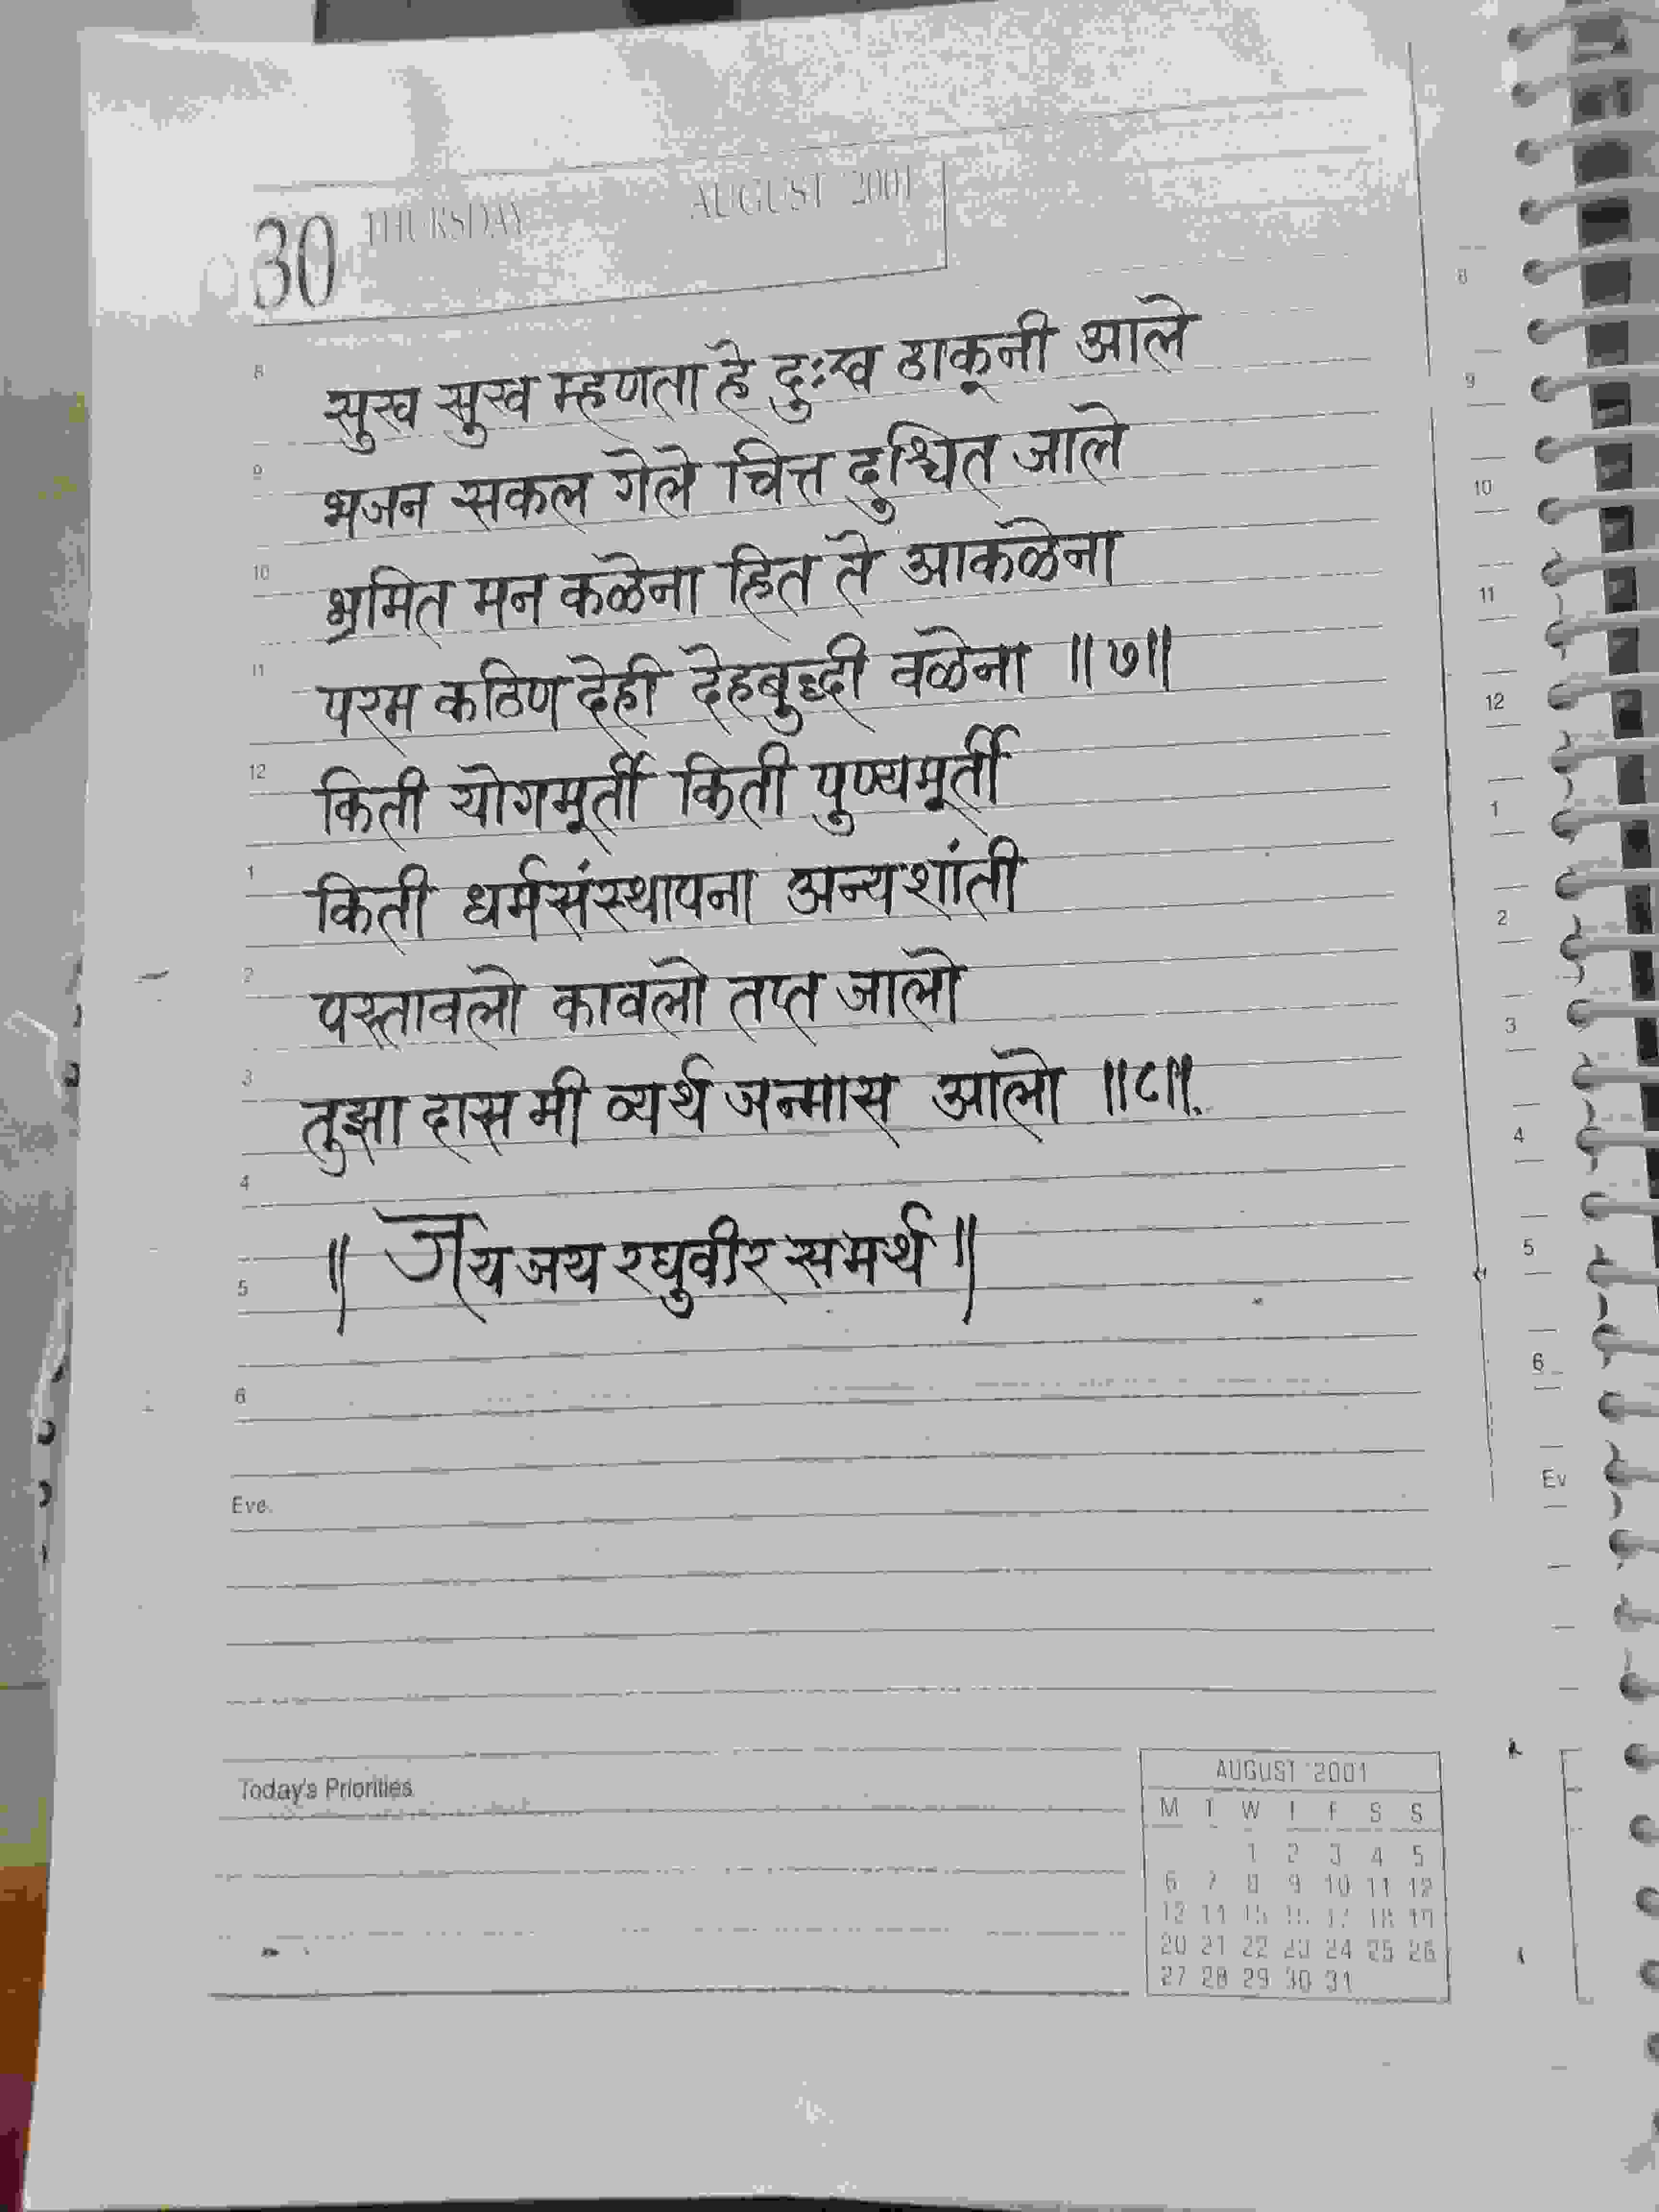 30 THURSDAY AUGUST 2001
8
8 सुख सुख म्हणता हे दुःख ठाकूनी आले
9
9 भजन सकल गेले चित्त दुश्चित जाले
10
10 भ्रमित मन कळेना हित ते आकळेना
11
11 परम कठिण देही देहबुद्धी वळेना ॥७॥
12
12 किती योगमूर्ती किती पुण्यमूर्ती
1
1 किती धर्मसंस्थापना अन्यशांती
2
2 पस्तावलो कावलो तप्त जालो
3
3 तुझा दास मी व्यर्थ जन्मास आलो ॥८॥
4
4
॥ जय जय रघुवीर समर्थ ॥
5
5
6
6
Ev
Eve.
Today's Priorities
AUGUST 2001
M T W T F S S
1 2 3 4 5
6 7 8 9 10 11 12
13 14 15 16 17 18 19
20 21 22 23 24 25 26
27 28 29 30 31